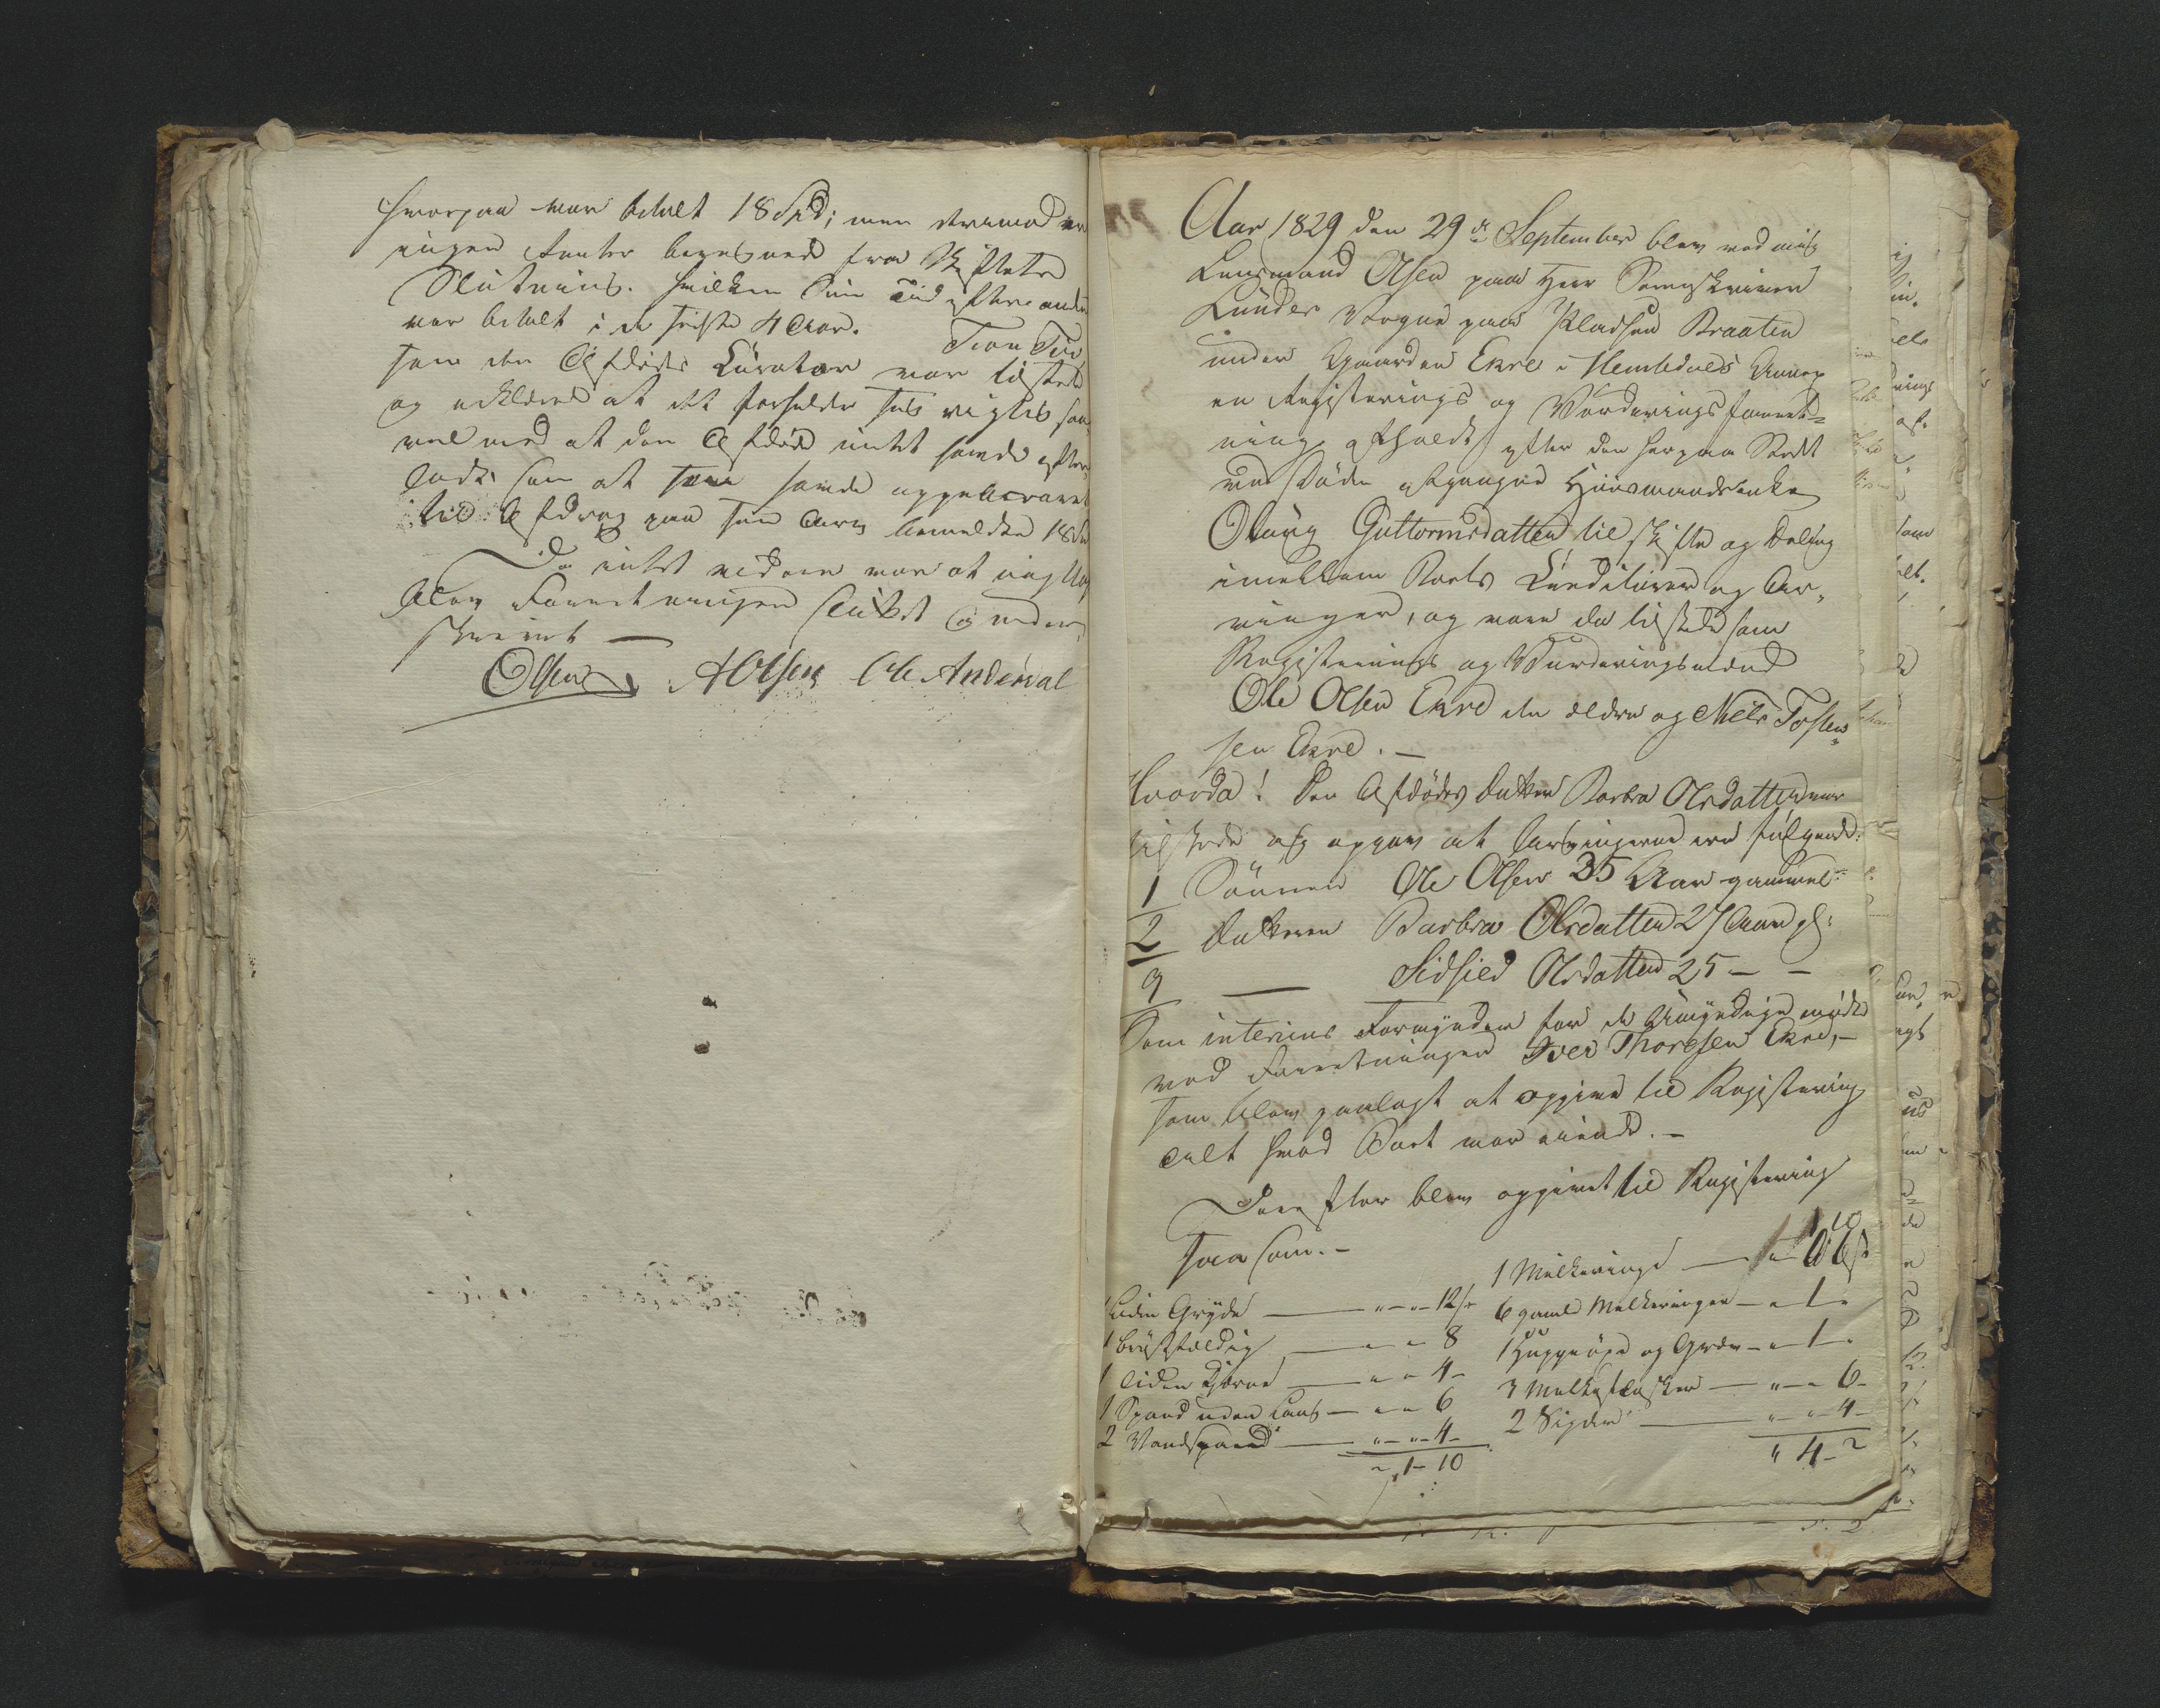 hvorpaa var betalt 18 Spd; men derimod er
ingen Renter beregnede fra Skiftets
Slutning. hvilken Sum Tid efter anden
var betalt i de sidste 4 Aar.
som den Afdødes Curator var tilstede
og erklærede at det forholder sig rigtig saa
vel med at den Afdøde intet havde efter
ladt som at han havde oppebaaret
til Afdrag paa sin Arv bemeldte 18 Spd
Da intet videre var at iagttage
blev Forretningen sluttet og under
skrevet —
Olsen AOlsen Ole Anderdal
Aar 1829 den 29de September blev ved mig
Lensmand Olsen paa Herr Sorenskriver
Lunder Vegne paa Pladsen Braaten
under Gaarden Ekre i Hemsedals Annex
en Registerings og Vurderings forret-
ning afholdt efter den her paa Stedet
ved Døden afgangne Huusmandsenke
Olaug Guttormsdatter til Skifte og Deling
imellem Boets Creditorer og Ar,
vinger, og vare da tilstede som
Registerings og Vurderingsmænd
Ole Olsen Ekre den ældre og Niels Tosten
sen Ekre. —
Hvorda! Den Afdødes Datter Barbra Olsdatter var
tilstede og opgav at Arvingerne ere følgende:
1 Sønnen Ole Olsen 35 Aar gammel
2 Datteren Barbra Olsdatter 27 Aar gl:
3 — Sidsel Olsdatter 25 — —
Som interims Formynder for de Umyndige mødte
ved Forretningen Iver Thoresen Ekre, —
som blev paalagt at opgive til Registering
alt hvad Boet var eiende. —
Derefter blev opgivet til Registering
saasom. —
1 liden Gryde — " — " — 12 s
1 brøstfældig — " — " 8
1 liden Kjerne — " " 4 —
1 Spand uden Laag — " " 6
2 Vandspand — " — " — 4 —
" 1 — 10
1 Melkeringe — " 10 s
6 gamle Melkeringer — " 1 "
1 Huggeøxe og Green — " 1 "
3 Melkeflasker — " — " 6 —
2 Sigder — " — " 4 —
" 4 — 2